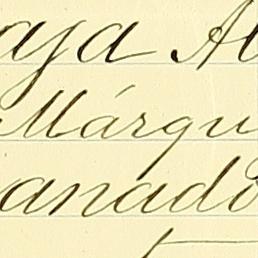 aya Al
Márqu
anado